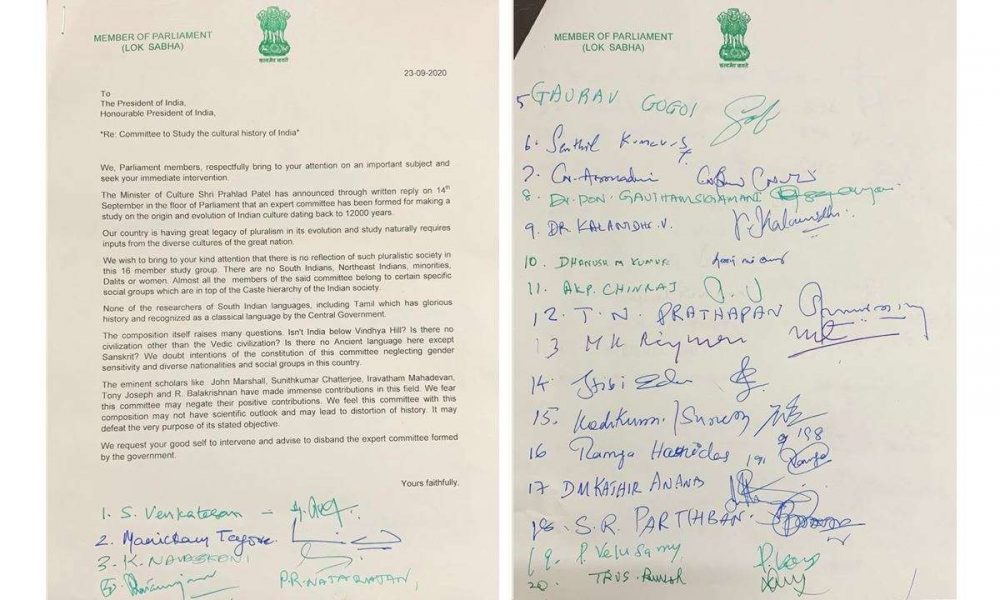 MEMBER OF PARLIAMENT
(LOK SABHA)
सत्यमेव जयते
23-09-2020
To
The President of India,
Honourable President of India,
*Re: Committee to Study the cultural history of India*
We, Parliament members, respectfully bring to your attention on an important subject and
seek your immediate intervention.
The Minister of Culture Shri Prahlad Patel has announced through written reply on 14th
September in the floor of Parliament that an expert committee has been formed for making a
study on the origin and evolution of Indian culture dating back to 12000 years.
Our country is having great legacy of pluralism in its evolution and study naturally requires
inputs from the diverse cultures of the great nation.
We wish to bring to your kind attention that there is no reflection of such pluralistic society in
this 16 member study group. There are no South Indians, Northeast Indians, minorities,
Dalits or women. Almost all the members of the said committee belong to certain specific
social groups which are in top of the Caste hierarchy of the Indian society.
None of the researchers of South Indian languages, including Tamil which has glorious
history and recognized as a classical language by the Central Government.
The composition itself raises many questions. Isn't India below Vindhya Hill? Is there no
civilization other than the Vedic civilization? Is there no Ancient language here except
Sanskrit? We doubt intentions of the constitution of this committee neglecting gender
sensitivity and diverse nationalities and social groups in this country.
The eminent scholars like John Marshall, Sunithkumar Chatterjee, Iravatham Mahadevan,
Tony Joseph and R. Balakrishnan have made immense contributions in this field. We fear
this committee may negate their positive contributions. We feel this committee with this
composition may not have scientific outlook and may lead to distortion of history. It may
defeat the very purpose of its stated objective.
We request your good self to intervene and advise to disband the expert committee formed
by the government.
Yours faithfully.
1. S. Venkatesan -
2. Manickam Tagore
3. K. NAVASKANI
P.R. NATARAJAN,
MEMBER OF PARLIAMENT
(LOK SABHA)
सत्यमेव जयते
5 GAURAV GOGOI
6. Senthil Kumar. S
7. CN. Annadurai
8. Dr. DON. GAUTHAMSIGAMANI
9. DR KALANIDHI. V.
10. DHANUSH M KUMAR
11. AKP. CHINRAJ
12. T. N. PRATHAPAN
13 MK
14
15.
16 Ramya Haridas 191
198
17 DM KATHIR ANAND
18. S.R. PARTHIBAN.
19. P. Velusamy
20. TRVS.